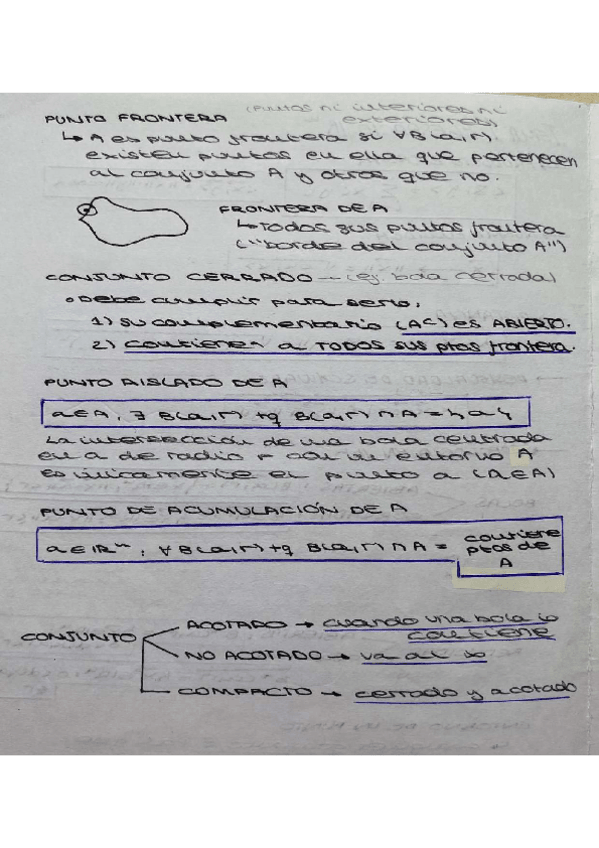 PUNTO FRONTERA (puntos ni interiores ni exteriores)
↳ A es punto frontera si ∀B(a,r)
existen puntos en ella que pertenecen
al conjunto A y otros que no.
FRONTERA DE A
↳ Todos sus puntos frontera
("borde del conjunto A")
CONJUNTO CERRADO → (ej. bola cerrada)
◦ Debe cumplir para serlo:
1) su complementario (Ac) es ABIERTO.
2) contiener a TODOS sus ptos frontera.
PUNTO AISLADO DE A
a∈A, ∃ B(a,r) tq B(a,r) ∩ A = {a}
La intersección de una bola centrada
en a de radio r con un entorno A
es únicamente el punto a (a∈A)
PUNTO DE ACUMULACIÓN DE A
a∈ℝⁿ, ∀ B(a,r) tq B(a,r) ∩ A = contiene ptos de A
CONJUNTO
ACOTADO → cuando una bola lo contiene
NO ACOTADO → va al ∞
COMPACTO → cerrado y acotado